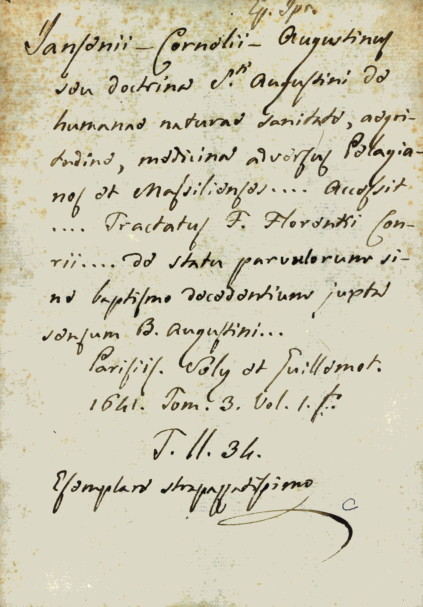 Ep. Ipr.
Jansenii – Cornelii – Augustinus
seu doctrina S.ti Augustini de
humanae naturae sanitate, aegri-
tudine, medicina adversus Pelagia-
nos et Massilienses.... Accessit
.... Tractatus F. Florentii Con-
rii.... de statu parvulorum si-
ne baptismo decedentium juxta
sensum B. Augustini...
Parisiis. Soly et Guillemot.
1641. Tom. 3. Vol. 1. f.
T. II. 34.
Esemplare strapazzatissimo